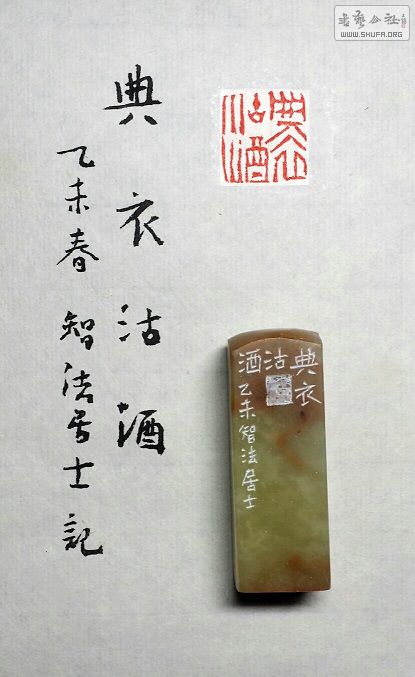 典衣沽酒
乙未春 智法居士記
典衣沽酒
典衣
沽
酒
乙未智法居士
書藝公社
WWW.SHUFA.ORG